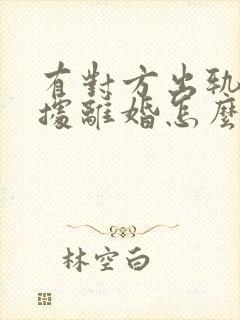 有對方出軌
據離婚怎麼
林空白